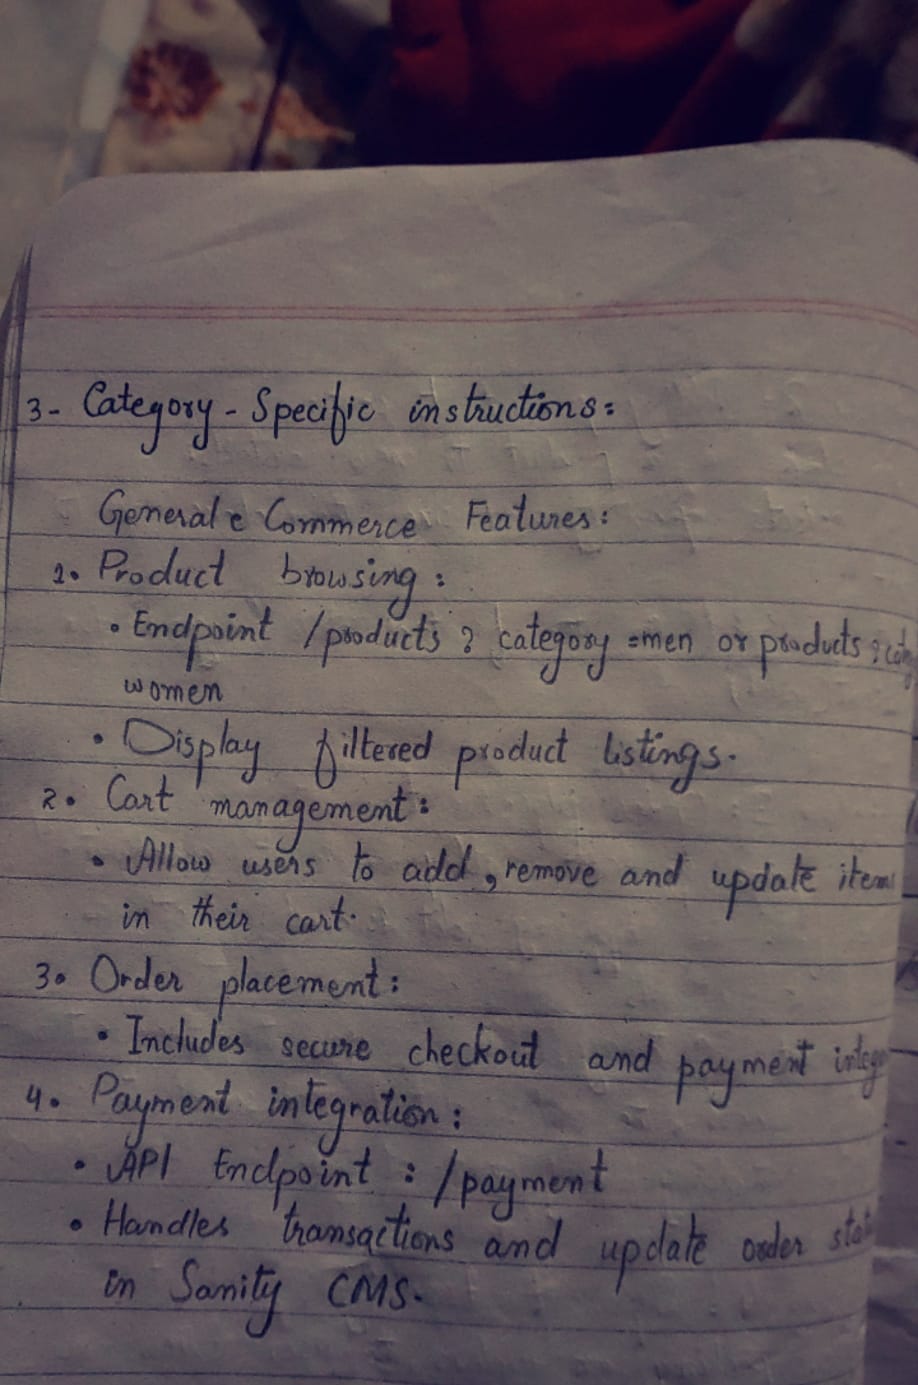 3- Category - Specific instructions:
General e Commerce Features:
1. Product browsing:
• Endpoint /products ? category =men or products ?
women
• Display filtered product listings.
2. Cart management:
• Allow users to add, remove and update item
in their cart.
3. Order placement:
• Includes secure checkout and payment
4. Payment integration:
• API Endpoint : /payment
• Handles transactions and update order
in Sanity CMS.